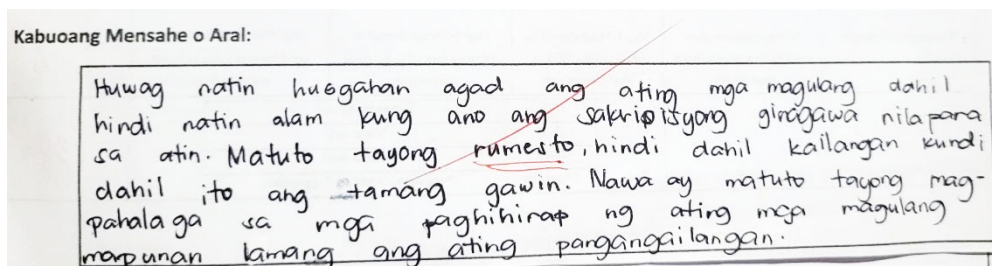 Kabuoang Mensahe o Aral:
Huwag natin husgahan agad ang ating mga magulang dahil
hindi natin alam kung ano ang sakripisyong ginagawa nila para
sa atin. Matuto tayong rumesto, hindi dahil kailangan kundi
dahil ito ang tamang gawin. Nawa ay matuto tayong mag-
pahalaga sa mga paghihirap ng ating mga magulang
mapunan lamang ang ating pangangailangan.